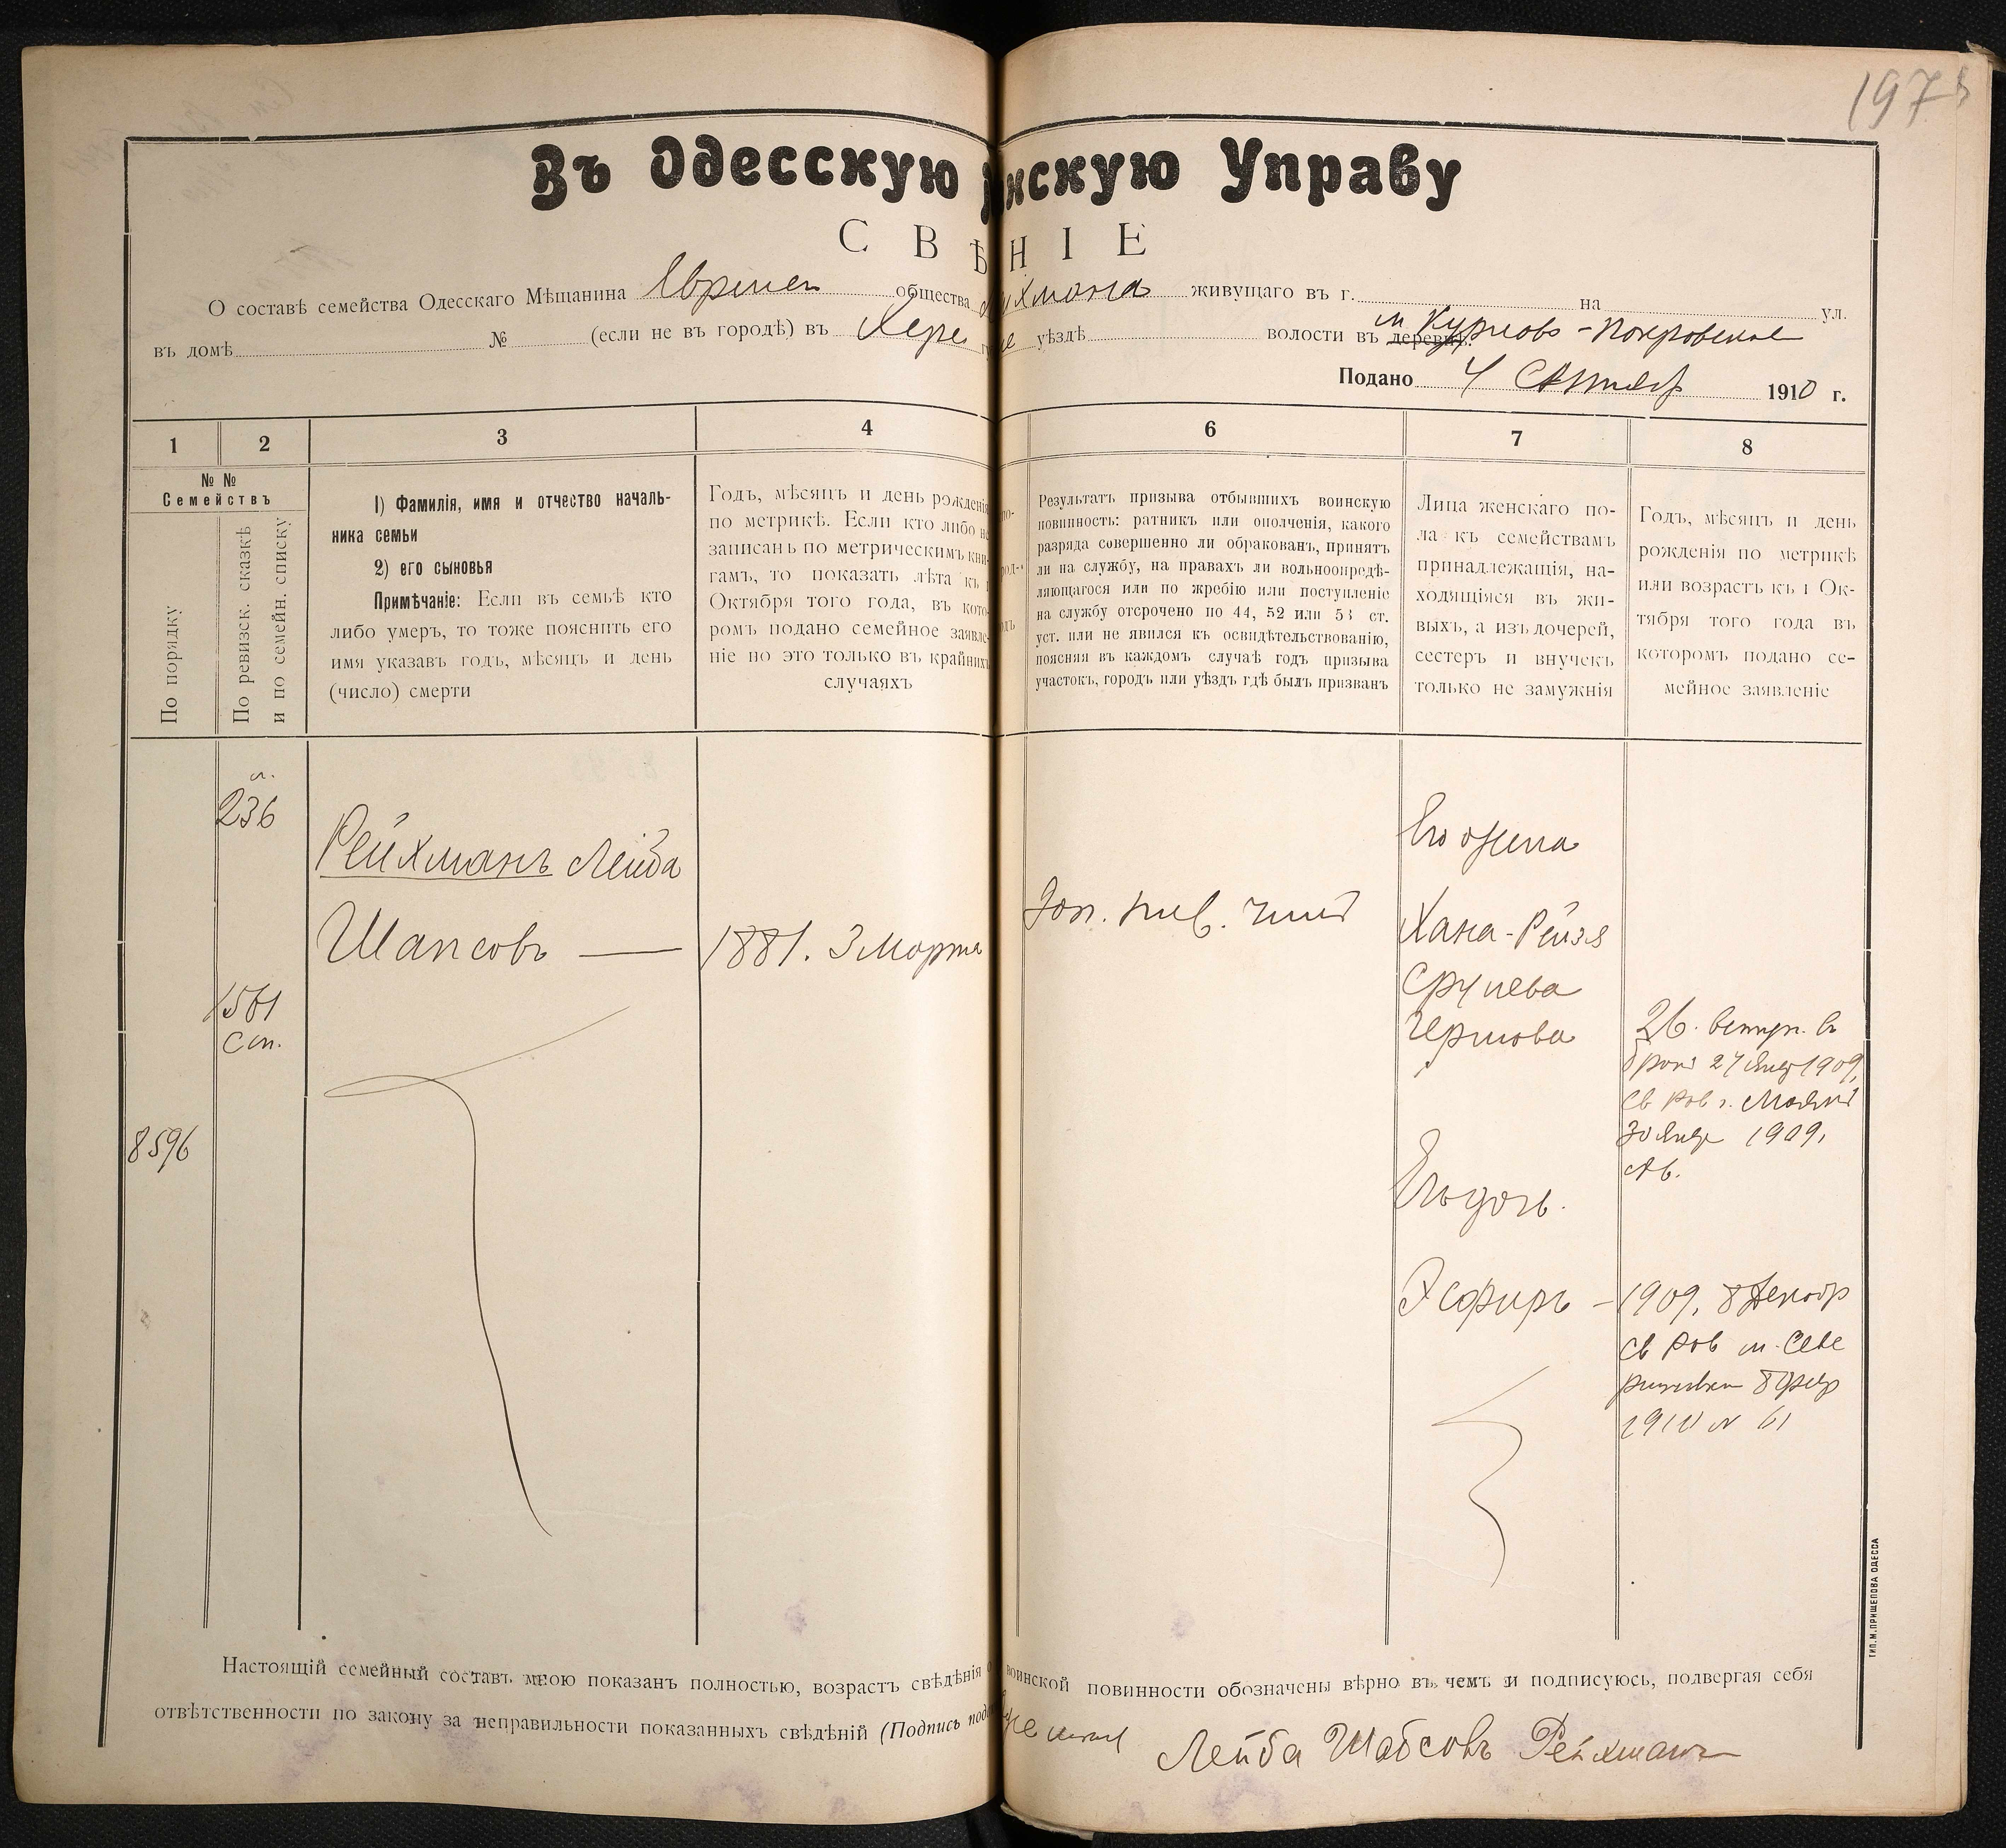 197
Въ Одесскую нскую Управу
С В Ѣ Н І Е
О составѣ семейства Одесскаго Мѣщанина общества живущаго въ г. на ул.
въ домѣ № (если не въ городѣ) въ уѣздѣ волости въ деревнѣ. м Покровское
Подано 4 1910 г.
1 2 3 4 6 7 8
№ №
Семействъ
По порядку
По ревизск. сказкѣ
и по семейн. списку
1) Фамилія, имя и отчество началь-
ника семьи
2) его сыновья
Примѣчаніе: Если въ семьѣ кто
либо умеръ, то тоже пояснить его
имя указавъ годъ, мѣсяцъ и день
(число) смерти
Годъ, мѣсяцъ и день рожденія
по метрикѣ. Если кто либо не
записанъ по метрическимъ кни-
гамъ, то показать лѣта къ 1
Октября того года, въ кото-
ромъ подано семейное заявле-
ніе но это только въ крайнихъ
случаяхъ
Результатъ призыва отбывшихъ воинскую
повинность: ратникъ или ополченія, какого
разряда совершенно ли обракованъ, принятъ
ли на службу, на правахъ ли вольноопредѣ-
ляющагося или по жребію или поступленіе
на службу отсрочено по 44, 52 или 53 ст.
уст. или не явился къ освидѣтельствованію,
поясняя въ каждомъ случаѣ годъ призыва
участокъ, городъ или уѣздъ гдѣ былъ призванъ
Лица женскаго по-
ла къ семействамъ
принадлежащія, на-
ходящіяся въ жи-
выхъ, а изъ дочерей,
сестеръ и внучекъ
только не замужнія
Годъ, мѣсяцъ и день
рожденія по метрикѣ
или возрастъ къ 1 Ок-
тября того года въ
которомъ подано се-
мейное заявленіе
236
Рейхманъ Лейба
Шапсовъ — 1881. 3 Марта
1561
Сп.
8596
Зап. чинъ
Его жена
Хана-Рейзя
Срулева
26. вступ. въ
бракъ 27 Янв 1909,
св Рав г. Маякъ
30 Янв 1909,
Его дочь.
Эсфирь — 1909, 8 Декабр
св Рав м. Севе
риновки 8 Февр
1910 № 61
Настоящій семейный составъ мною показанъ полностью, возрастъ свѣдѣнія о воинской повинности обозначены вѣрно въ чемъ и подписуюсь, подвергая себя
отвѣтственности по закону за неправильности показанныхъ свѣдѣній (Подпись
Лейба Шабсовъ Рейхманъ
ТИП. М. ПРИЩЕПОВА ОДЕССА